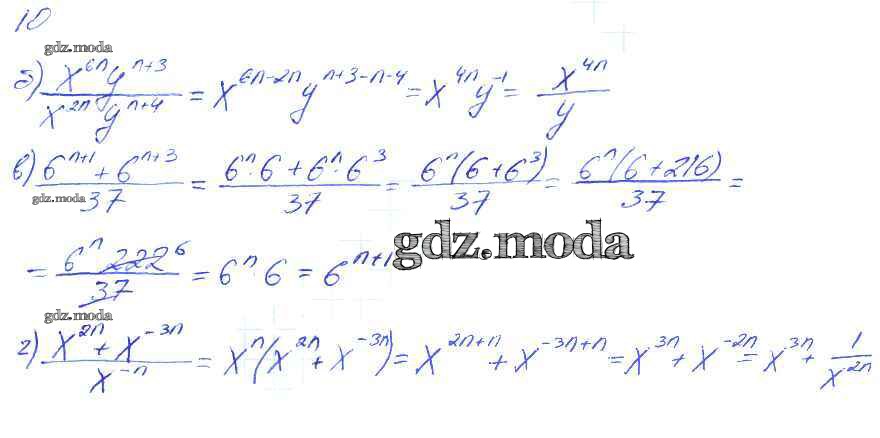 10
gdz.moda
б) x^{6n}y^{n+3} / x^{2n}y^{n+4} = x^{6n-2n}y^{n+3-n-4} = x^{4n}y^{-1} = x^{4n} / y
в) 6^{n+1} + 6^{n+3} / 37 = 6^n · 6 + 6^n · 6^3 / 37 = 6^n(6 + 6^3) / 37 = 6^n(6 + 216) / 37 =
gdz.moda
gdz.moda
= 6^n 222^6 / 37 = 6^n · 6 = 6^{n+1}
gdz.moda
г) x^{2n} + x^{-3n} / x^{-n} = x^n(x^{2n} + x^{-3n}) = x^{2n+n} + x^{-3n+n} = x^{3n} + x^{-2n} = x^{3n} + 1 / x^{2n}